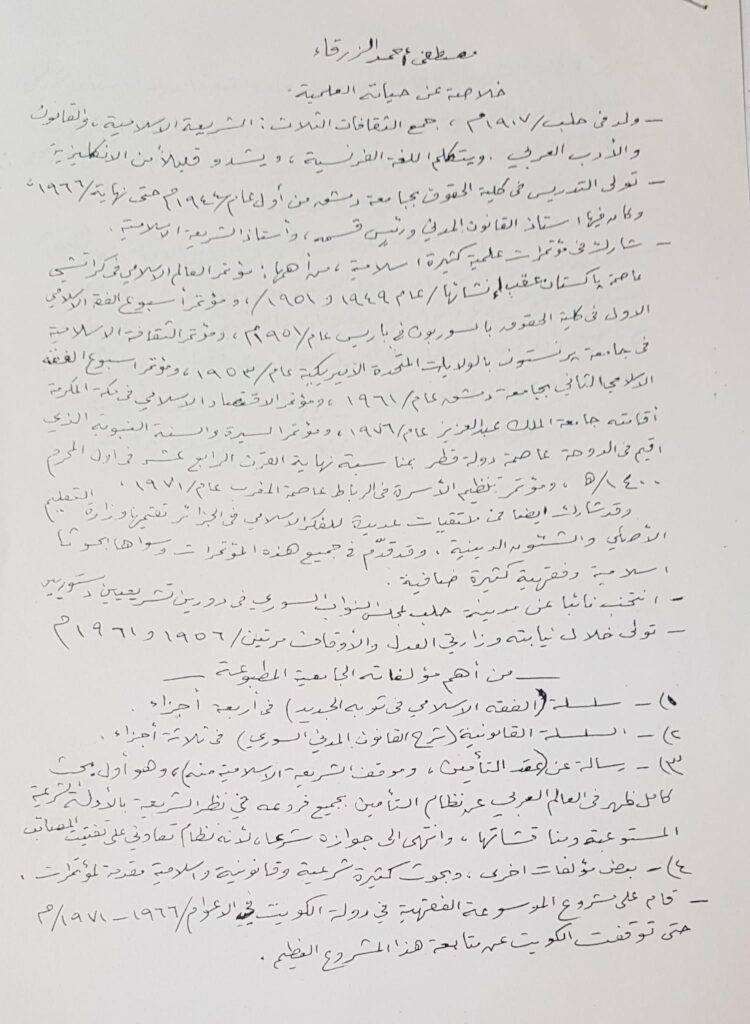 مصطفى أحمد الزرقاء
خلاصة عن حياته العلمية.
– ولد في حلب/١٩٠٧م، جمع الثقافات الثلاث: الشريعة الاسلامية، والقانون
والأدب العربي. ويتكلم اللغة الفرنسية، ويشدو قليلاً من الانكليزية
– تولى التدريس في كلية الحقوق بجامعة دمشق من أول عام/١٩٤٤م حتى نهاية/١٩٦٦،
وكان فيها استاذ القانون المدني ورئيس قسمه، وأستاذ الشريعة الاسلامية.
– شارك في مؤتمرات علمية كثيرة اسلامية، من أهمها: مؤتمر العالم الاسلامي في كراتشي
عاصمة باكستان عقب إنشائها/عام ١٩٤٩ و ١٩٥١/، ومؤتمر أسبوع الفقه الاسلامي
الاول في كلية الحقوق بالسوربون في باريس عام/١٩٥١م، ومؤتمر الثقافة الاسلامية
في جامعة برنستون بالولايات المتحدة الاميريكية عام/١٩٥٣، ومؤتمر اسبوع الفقه
الاسلامي الثاني بجامعة دمشق عام/١٩٦١، ومؤتمر الاقتصاد الاسلامي في مكة المكرمة
أقامته جامعة الملك عبدالعزيز عام/١٩٧٦، ومؤتمر السيرة والسنة النبوية الذي
اقيم في الدوحة عاصمة دولة قطر بمناسبة نهاية القرن الرابع عشر في اول المحرم
١٤٠٠/ﻫ، ومؤتمر تنظيم الأسرة في الرباط عاصمة المغرب عام/١٩٧١.
وقد شارك ايضا في ملتقيات عديدة للفكر الاسلامي في الجزائر تقيمها وزارة التعليم
الأصلي والشئون الدينية. وقد قدّم في جميع هذه المؤتمرات وسواها بحوثا
اسلامية وفقهية كثيرة ضافية.
– انتخب نائبا عن مدينة حلب لمجلس النواب السوري في دورين تشريعيين دستوريين
– تولى خلال نيابته وزارتي العدل والأوقاف مرتين/١٩٥٦ و ١٩٦١م
— من أهم مؤلفاته الجامعية المطبوعة —
١) – سلسلة (الفقه الاسلامي في ثوبه الجديد) في أربعة أجزاء.
٢) – السلسلة القانونية (شرح القانون المدني السوري) في ثلاثة أجزاء.
٣) – رسالة عن (عقد التأمين، وموقف الشريعة الاسلامية منه)، وهو أول بحث
كامل ظهر في العالم العربي عن نظام التأمين بجميع فروعه في نظر الشريعة بالأدلة الشرعية
المستوعبة ومناقشاتها، وانتهى الى جوازه شرعا، لأنه نظام تعاوني على تفتيت المصائب
٤) – بعض مؤلفات اخرى، وبحوث كثيرة شرعية وقانونية واسلامية مقدمة لمؤتمرات.
– قام على مشروع الموسوعة الفقهية في دولة الكويت في الاعوام/١٩٦٦–١٩٧١/م
حتى توقفت الكويت عن متابعة هذا المشروع العظيم.